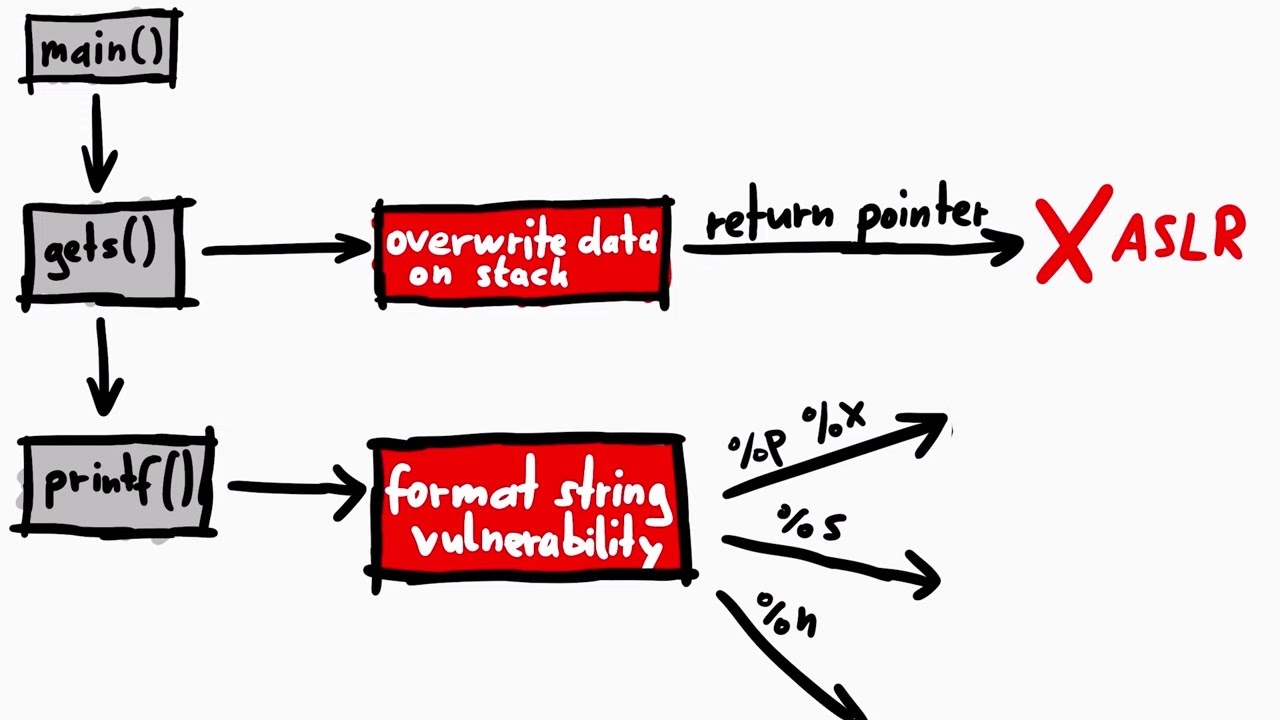 main()
gets()
overwrite data
on stack
return pointer
X ASLR
printf()
format string
vulnerability
%p %x
%s
%n